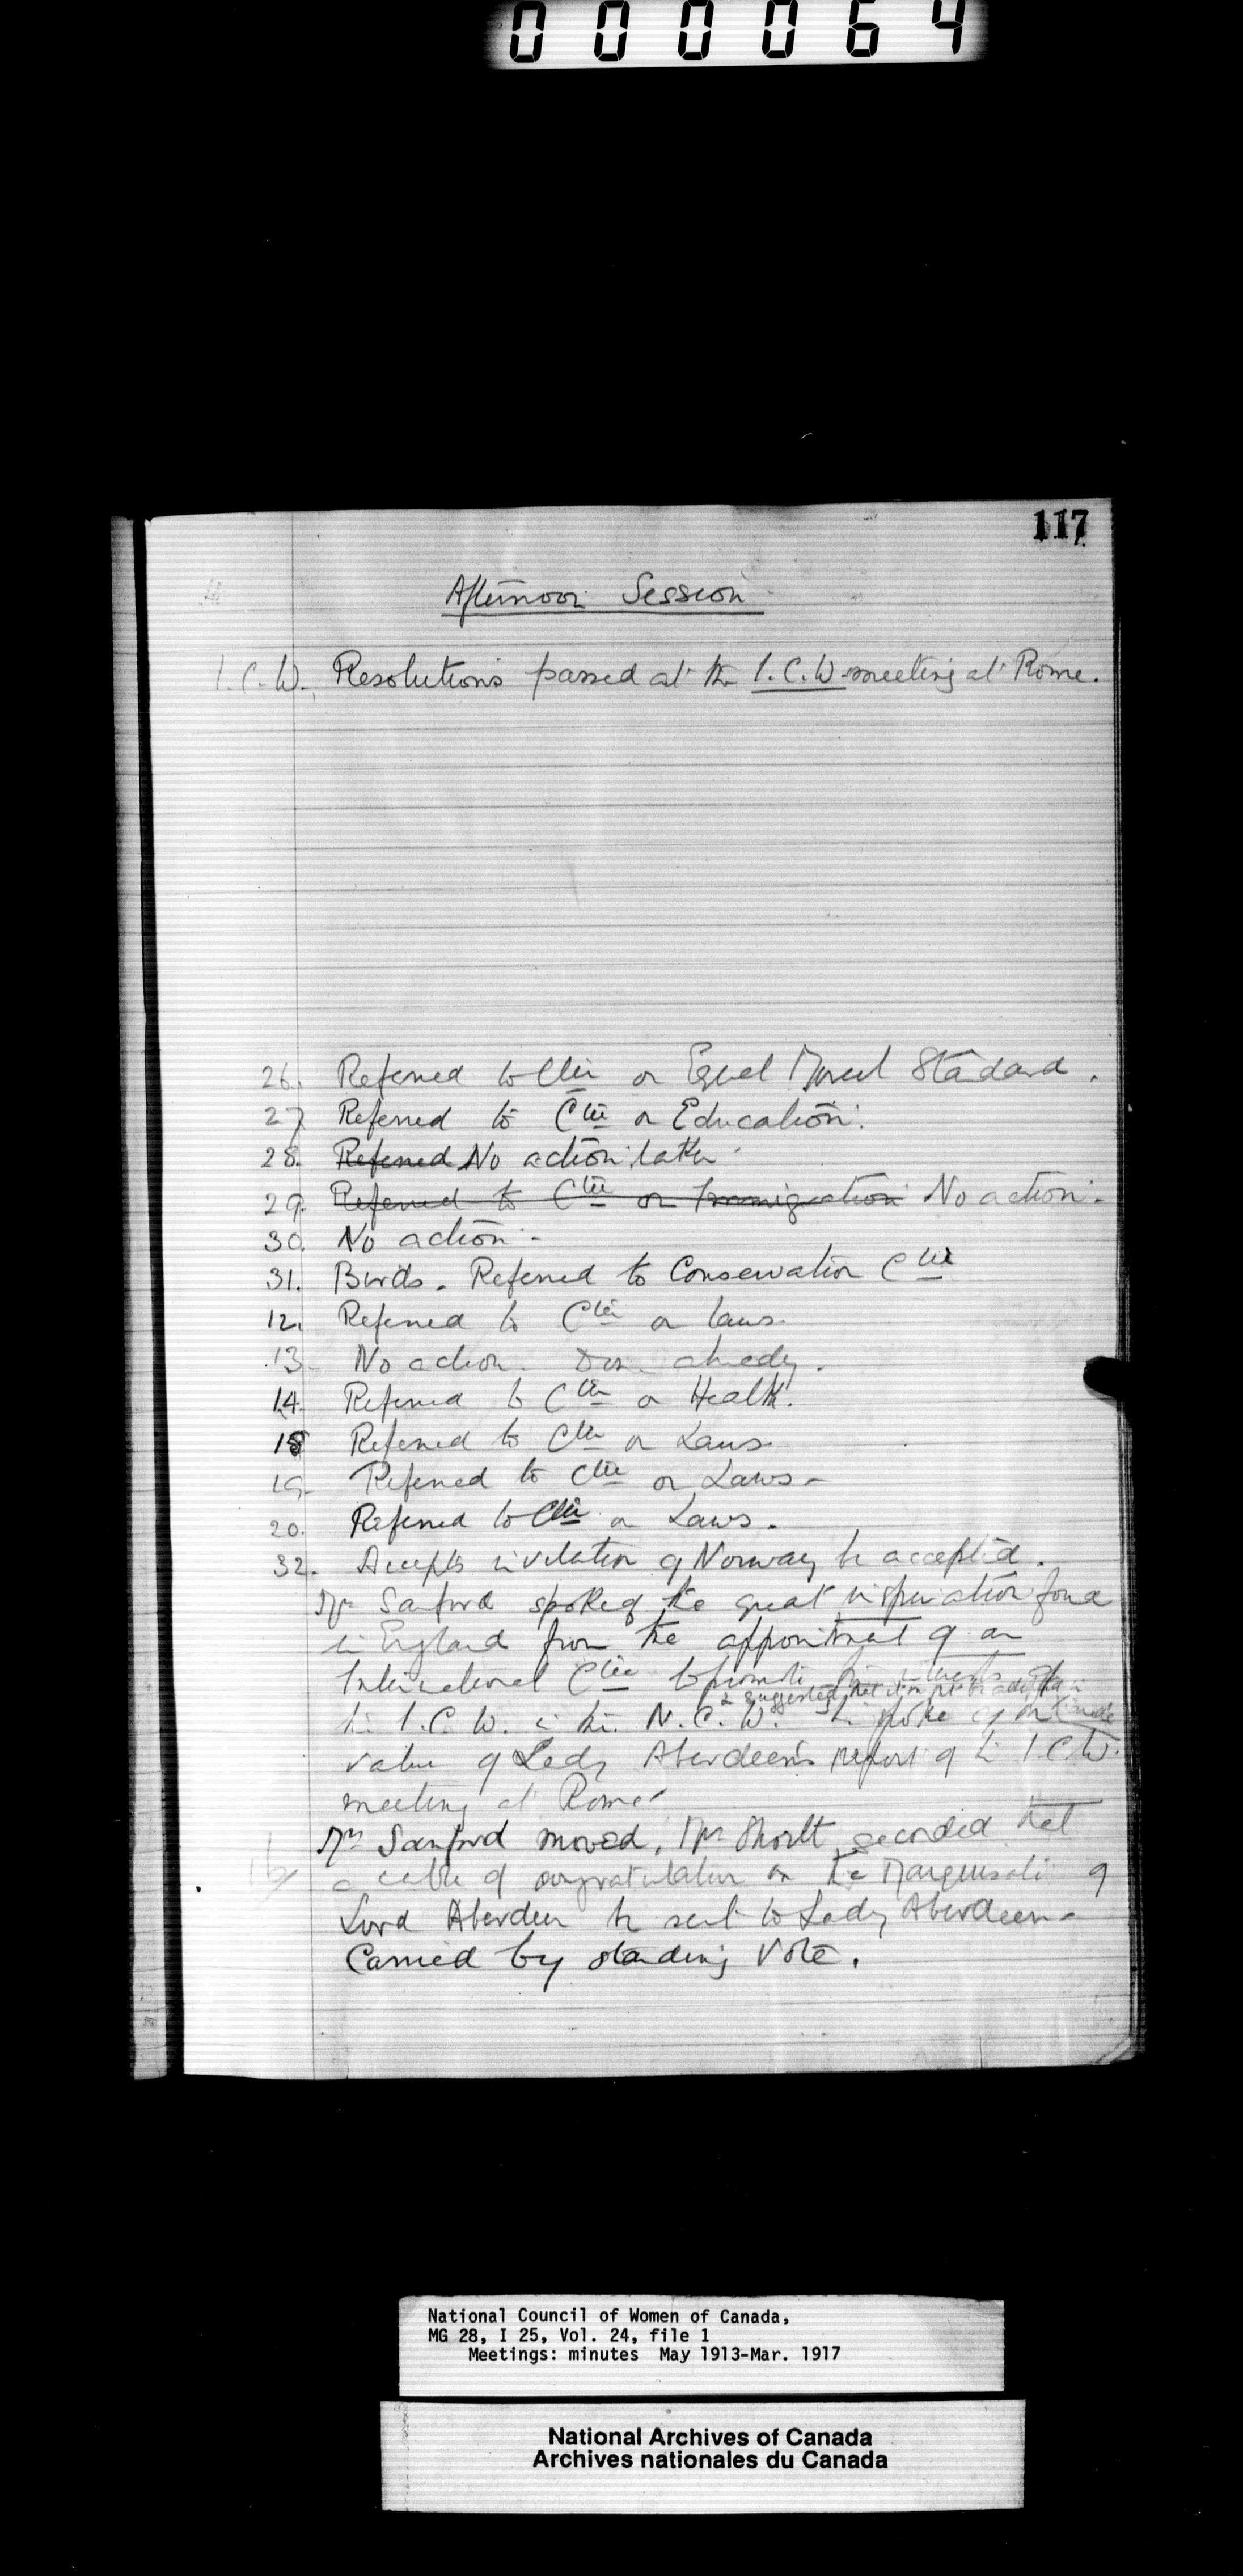 000064
117
Afternoon Session
I.C.W. Resolutions passed at the I.C.W. meeting at Rome.
26. Referred to Ctee on Equal Moral Standard.
27 Referred to Ctee on Education.
28. Referred No action later
29. Referred to Ctee on Immigration No action.
30. No action.
31. Birds. Referred to Conservation Ctee
12. Referred to Ctee on laws.
13. No action. Done already.
14. Referred to Ctee on Health.
18 Referred to Ctee on Laws.
19. Referred to Ctee on Laws.
20. Referred to Ctee on Laws.
32. Accepts invitation of Norway be accepted.
Mrs Sanford spoke of the great inspiration found
in England from the appointment of an
International Ctee to promote the interests of
& suggested that it might be adopted in Canada
the I.C.W. in the N.C.W. spoke of the
value of Lady Aberdeen's report of the I.C.W.
meeting at Rome.
Mrs Sanford moved, Mrs Shortt seconded that
a cable of congratulation on the Marquisate of
Lord Aberdeen be sent to Lady Aberdeen.
Carried by standing vote.
National Council of Women of Canada,
MG 28, I 25, Vol. 24, file 1
Meetings: minutes May 1913-Mar. 1917
National Archives of Canada
Archives nationales du Canada